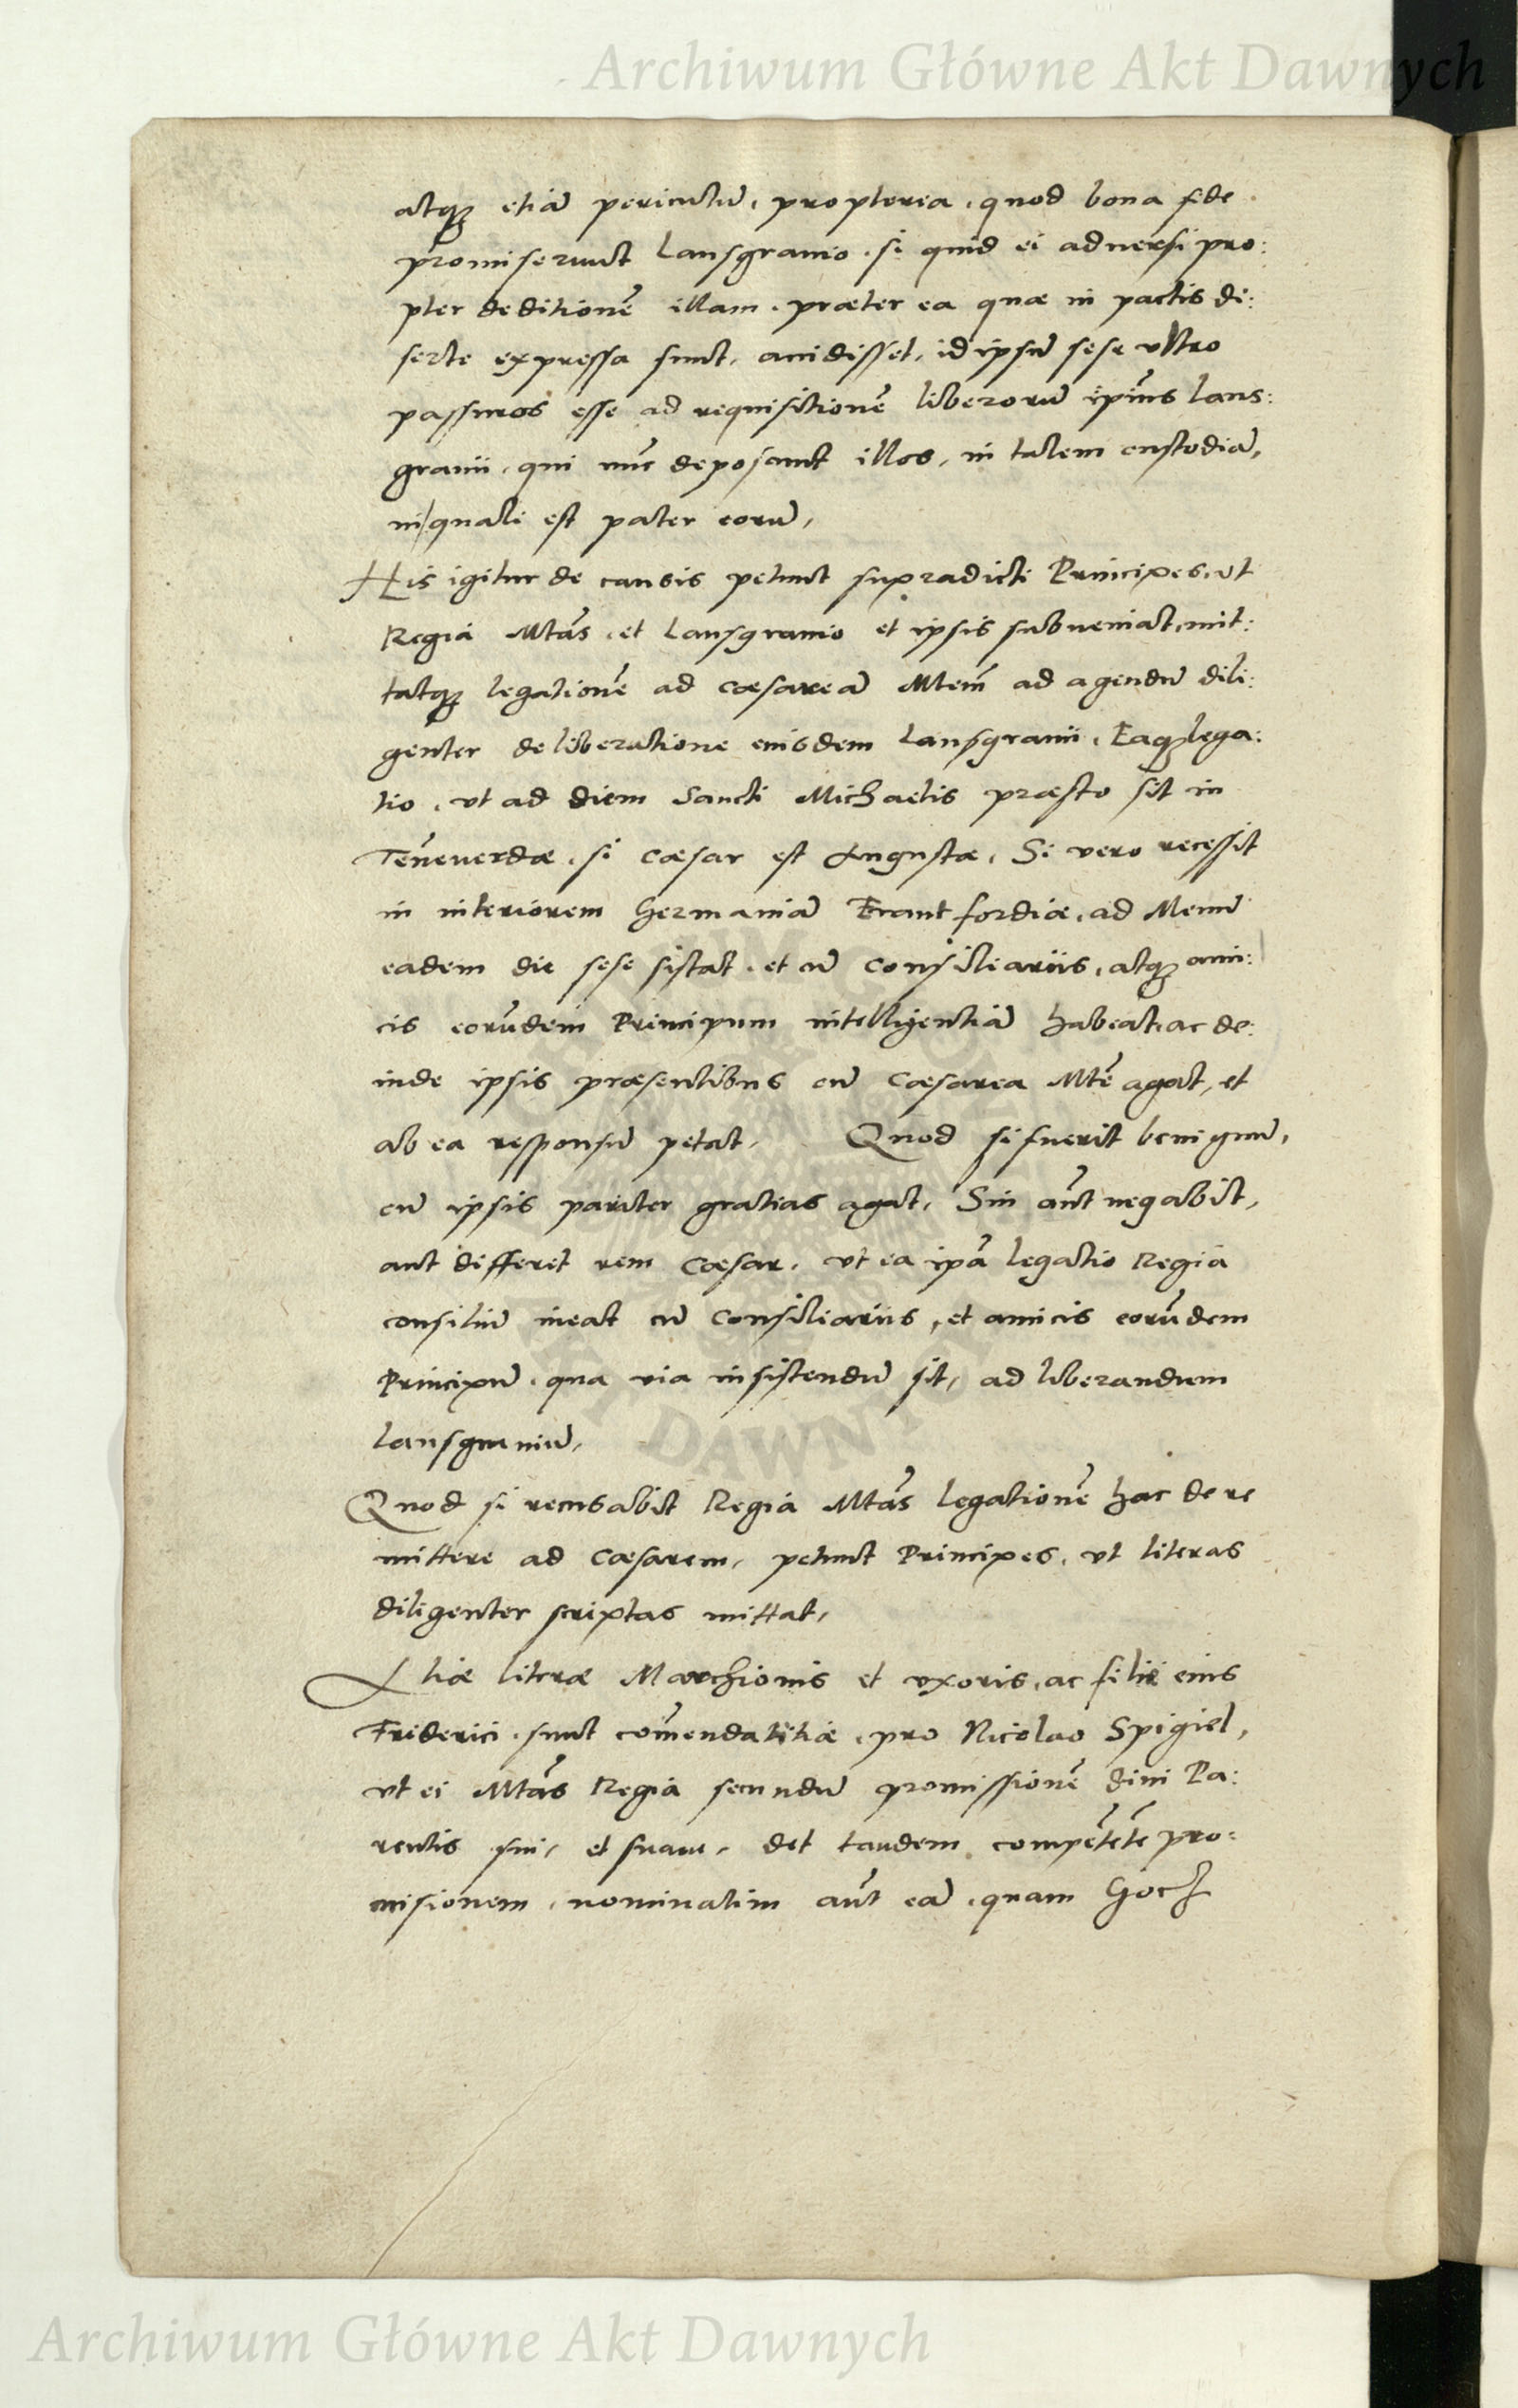 Archiwum Główne Akt Dawnych
atq₃ etiā pericultū, propterea, quod bona fide
promiserunt Lansgravio, si quid ei adversi pro:
pter deditionē illam, præter ea quæ in pactis di:
serte expressa sunt, accidisset, id ipsū sese ultro
passuros esse ad requisitionē liberorū ip̄ius Lans:
gravii, qui nūc deposcunt illos, in talem custodiā,
in/quali est pater eorū,
His igitur de causis petunt supradicti Principes, ut
Regia Mtās, et Lansgravio et ipsis subveniat, mit:
tatq₃ legationē ad Cæsareā Mtem̄ ad agendū dili:
genter de liberatione eiusdem Lansgravii, Eaq₃ lega:
tio, ut ad diem Sancti Michaelis præsto sit in
Tēneverdæ, si Cæsar est Augustæ, Si vero recessit
in interiorem Germaniā Francfordiæ, ad Menū
eadem die sese sistat, et cū Consiliariis, atq₃ ami:
cis eorūdem Principum intelligentiā habeat, ac de:
inde ipsis præsentibus cū Cæsarea Mtē agat, et
ab ea responsū petat, Quod si fuerit benignū,
cū ipsis pariter gratias agat, Sin aūt negabit,
aut differet rem Cæsar, ut ea ipā legatio Regia
consiliū ineat cū Consiliariis, et amicis eorūdem
Principū, qua via insistendū sit, ad liberandum
Lansgraviū,
Quod si recusabit Regia Mtās legationē hac de re
mittere ad Cæsarem, petunt Principes, ut literas
diligenter scriptas mittat,
Aliæ literæ Marchionis et uxoris, ac filii eius
Friderici, sunt com̄endatitiæ, pro Nicolao Spigiel,
ut ei Mtās Regia secundū promissionē divi Pa:
rentis sui, et suam, det tandem compētētē pro:
misionem, nominatim aūt eā, quam Gocz
ARCHIWUM GŁÓWNE AKT DAWNYCH
Archiwum Główne Akt Dawnych